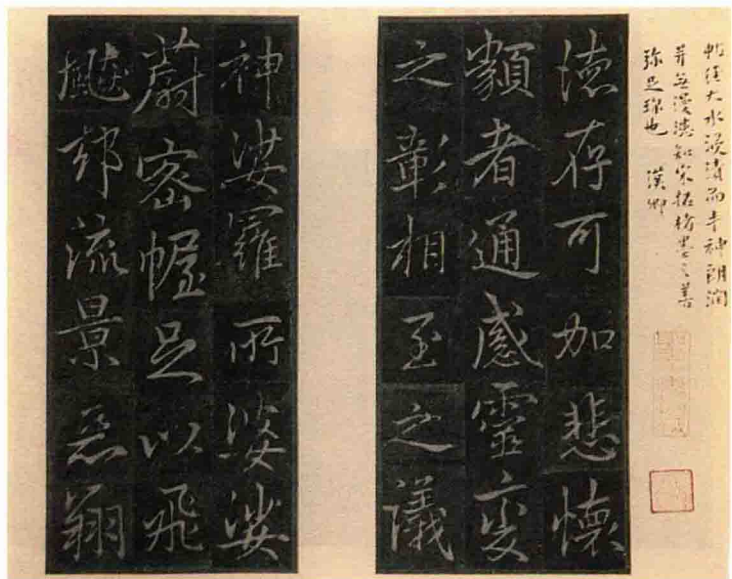 帖經大水浸漬而丰神朗潤
并無漫漶知宋拓楮墨之善
弥足珍也 漢卿
德存可加悲懷
類者通感靈變
之彰相至之議
神娑羅所婆娑
蔚密幄足以飛
飈却流景惡翔